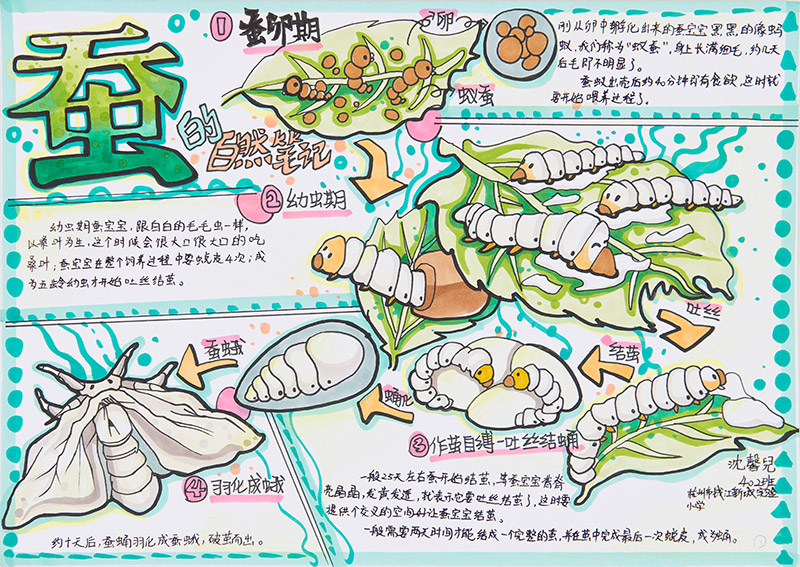 蚕
的
自然笔记
①蚕卵期
卵
蚁蚕
刚从卵中孵化出来的蚕宝宝黑黑的像蚂
蚁,我们称为“蚁蚕”,身上长满细毛,约几天
后毛即不明显了。
蚕蚁出壳后约40分钟即有食欲,这时就
要开始喂养过程了。
②幼虫期
幼虫期蚕宝宝,跟白白的毛毛虫一样,
以桑叶为生,这个时候会很大口很大口的吃
桑叶;蚕宝宝在整个饲养过程中要蜕皮4次;成
为五龄幼虫才开始吐丝结茧。
吐丝
结茧
蛹化
蚕蛾
③作茧自缚-吐丝结蛹
一般25天左右蚕开始结茧,等蚕宝宝看着
亮晶晶,发黄发透,就表示它要吐丝结茧了,这时要
提供个交叉的空间好让蚕宝宝结茧。
一般需要两天时间才能结成一个完整的茧,并在茧中完成最后一次蜕皮,成为蛹。
④羽化成蛾
约十天后,蚕蛹羽化成蚕蛾,破茧而出。
沈馨兒
402班
杭州市钱江新城实验
小学